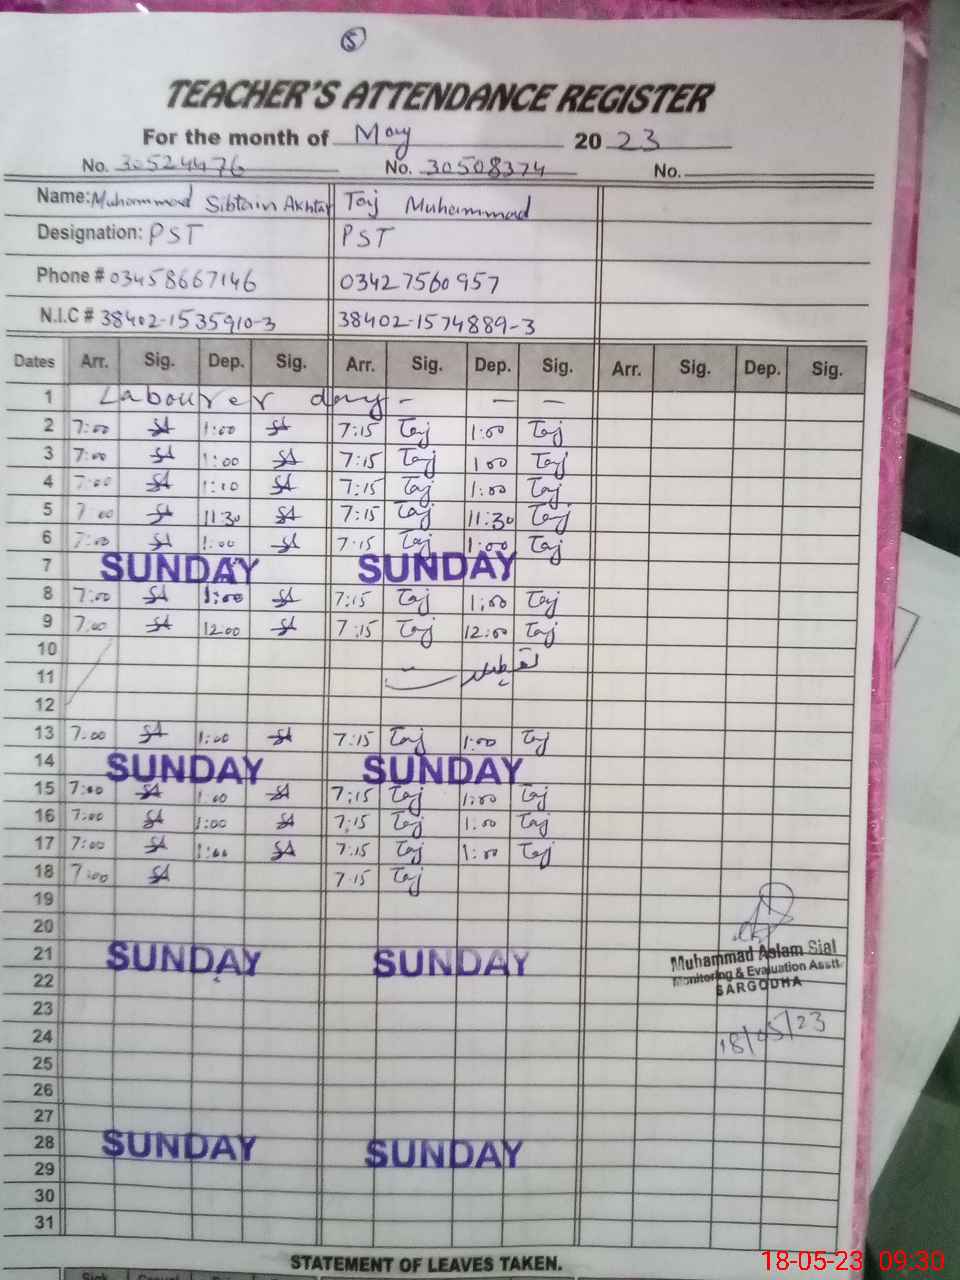 5
TEACHER'S ATTENDANCE REGISTER
For the month of May 2023
No. 30524476 No. 30508374 No.
Name: Muhammad Sibtain Akhtar Taj Muhammad
Designation: PST PST
Phone # 03458667146 03427560957
N.I.C # 38402-1535910-3 38402-1574889-3
Dates Arr. Sig. Dep. Sig. Arr. Sig. Dep. Sig. Arr. Sig. Dep. Sig.
1 Labourer day - - -
2 7:00 SA 1:00 SA 7:15 Taj 1:00 Taj
3 7:00 SA 1:00 SA 7:15 Taj 1:00 Taj
4 7:00 SA 1:00 SA 7:15 Taj 1:00 Taj
5 7:00 SA 11:30 SA 7:15 Taj 11:30 Taj
6 7:00 SA 1:00 SA 7:15 Taj 1:00 Taj
7 SUNDAY SUNDAY
8 7:00 SA 1:00 SA 7:15 Taj 1:00 Taj
9 7.00 SA 12.00 SA 7:15 Taj 12:00 Taj
10
11 تعطیلات
12
13 7.00 SA 1:00 SA 7:15 Taj 1:00 Taj
14 SUNDAY SUNDAY
15 7:00 SA 1:00 SA 7:15 Taj 1:00 Taj
16 7:00 SA 1:00 SA 7:15 Taj 1:00 Taj
17 7:00 SA 1:00 SA 7:15 Taj 1:00 Taj
18 7:00 SA 7.15 Taj
19
20
21 SUNDAY SUNDAY
Muhammad Aslam Sial
Monitoring & Evaluation Asstt.
SARGODHA
22
23
24 18/05/23
25
26
27
28 SUNDAY SUNDAY
29
30
31
STATEMENT OF LEAVES TAKEN.
18-05-23 09:30